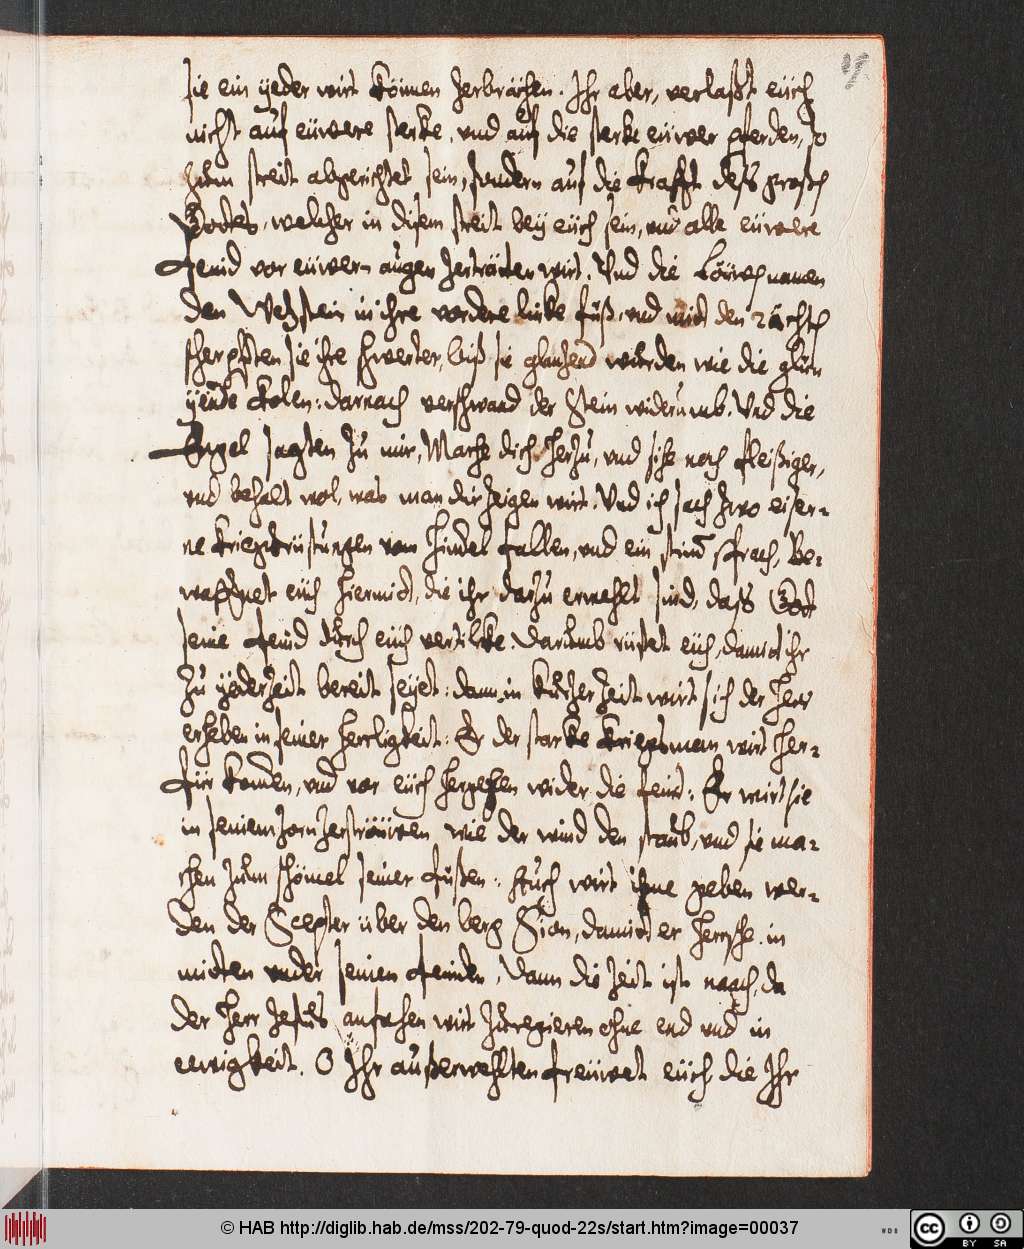 sie ein ÿeder wirt können zerbrächen. Ihr aber, verlaßt eüch
nicht auf eüwere sterke, und auf die sterke eüwer pferden, so
zum streit abgerichtet sein, sondern auf die Krafft deß großen
Gottes, welcher in disem streit beÿ eüch sein, und alle eüwere
feind vor eüwern augen zerträtten wirt. Und die Löüwen namen
den Wetzstein in ihre vordere linke füß, und mit den rächten
scherpften sie ihre schwerter, biß sie glantzend wurden wie die glüen
ÿende Kolen: darnach verschwand der Stein widerumb. Und die
Engel sagten zu mir, Mache dich herzu, und sihe noch fleißiger,
und behalt wol, was man dir zeigen wirt. Und ich sach zwo eiser-
ne Kriegsrüstungen vom Himel fallen, und ein stim sprach, Be-
waffnet eüch hiermit, die ihr darzu erwehlt sind, daß Gott
seine feind durch eüch vertilcke. Darumb rüstet eüch, damit ihr
zu ÿederzeit bereit seÿet: dann in kurtzer zeit wirt sich der Herr
erheben in seiner Herrligkeit: Er der starke Kriegsman wirt her-
für komen, und vor eüch hergehen wider die feind: Er wirt sie
in seinem zorn zerströüwen wie der wind den staub, und sie ma-
chen zum schömel seiner füßen: Auch wirt ihme geben wer-
den der Scepter über den berg Sion, damit er herrsche in
mitten under seinen feinden, Dann die zeit ist naach, da
der Herr Jesus anfahen wirt zu regieren ohne end und in
eewigkeit. O Ihr außerwehlten freüwet eüch, die Ihr
© HAB http://diglib.hab.de/mss/202-79-quod-22s/start.htm?image=00037
WDB
cc BY SA